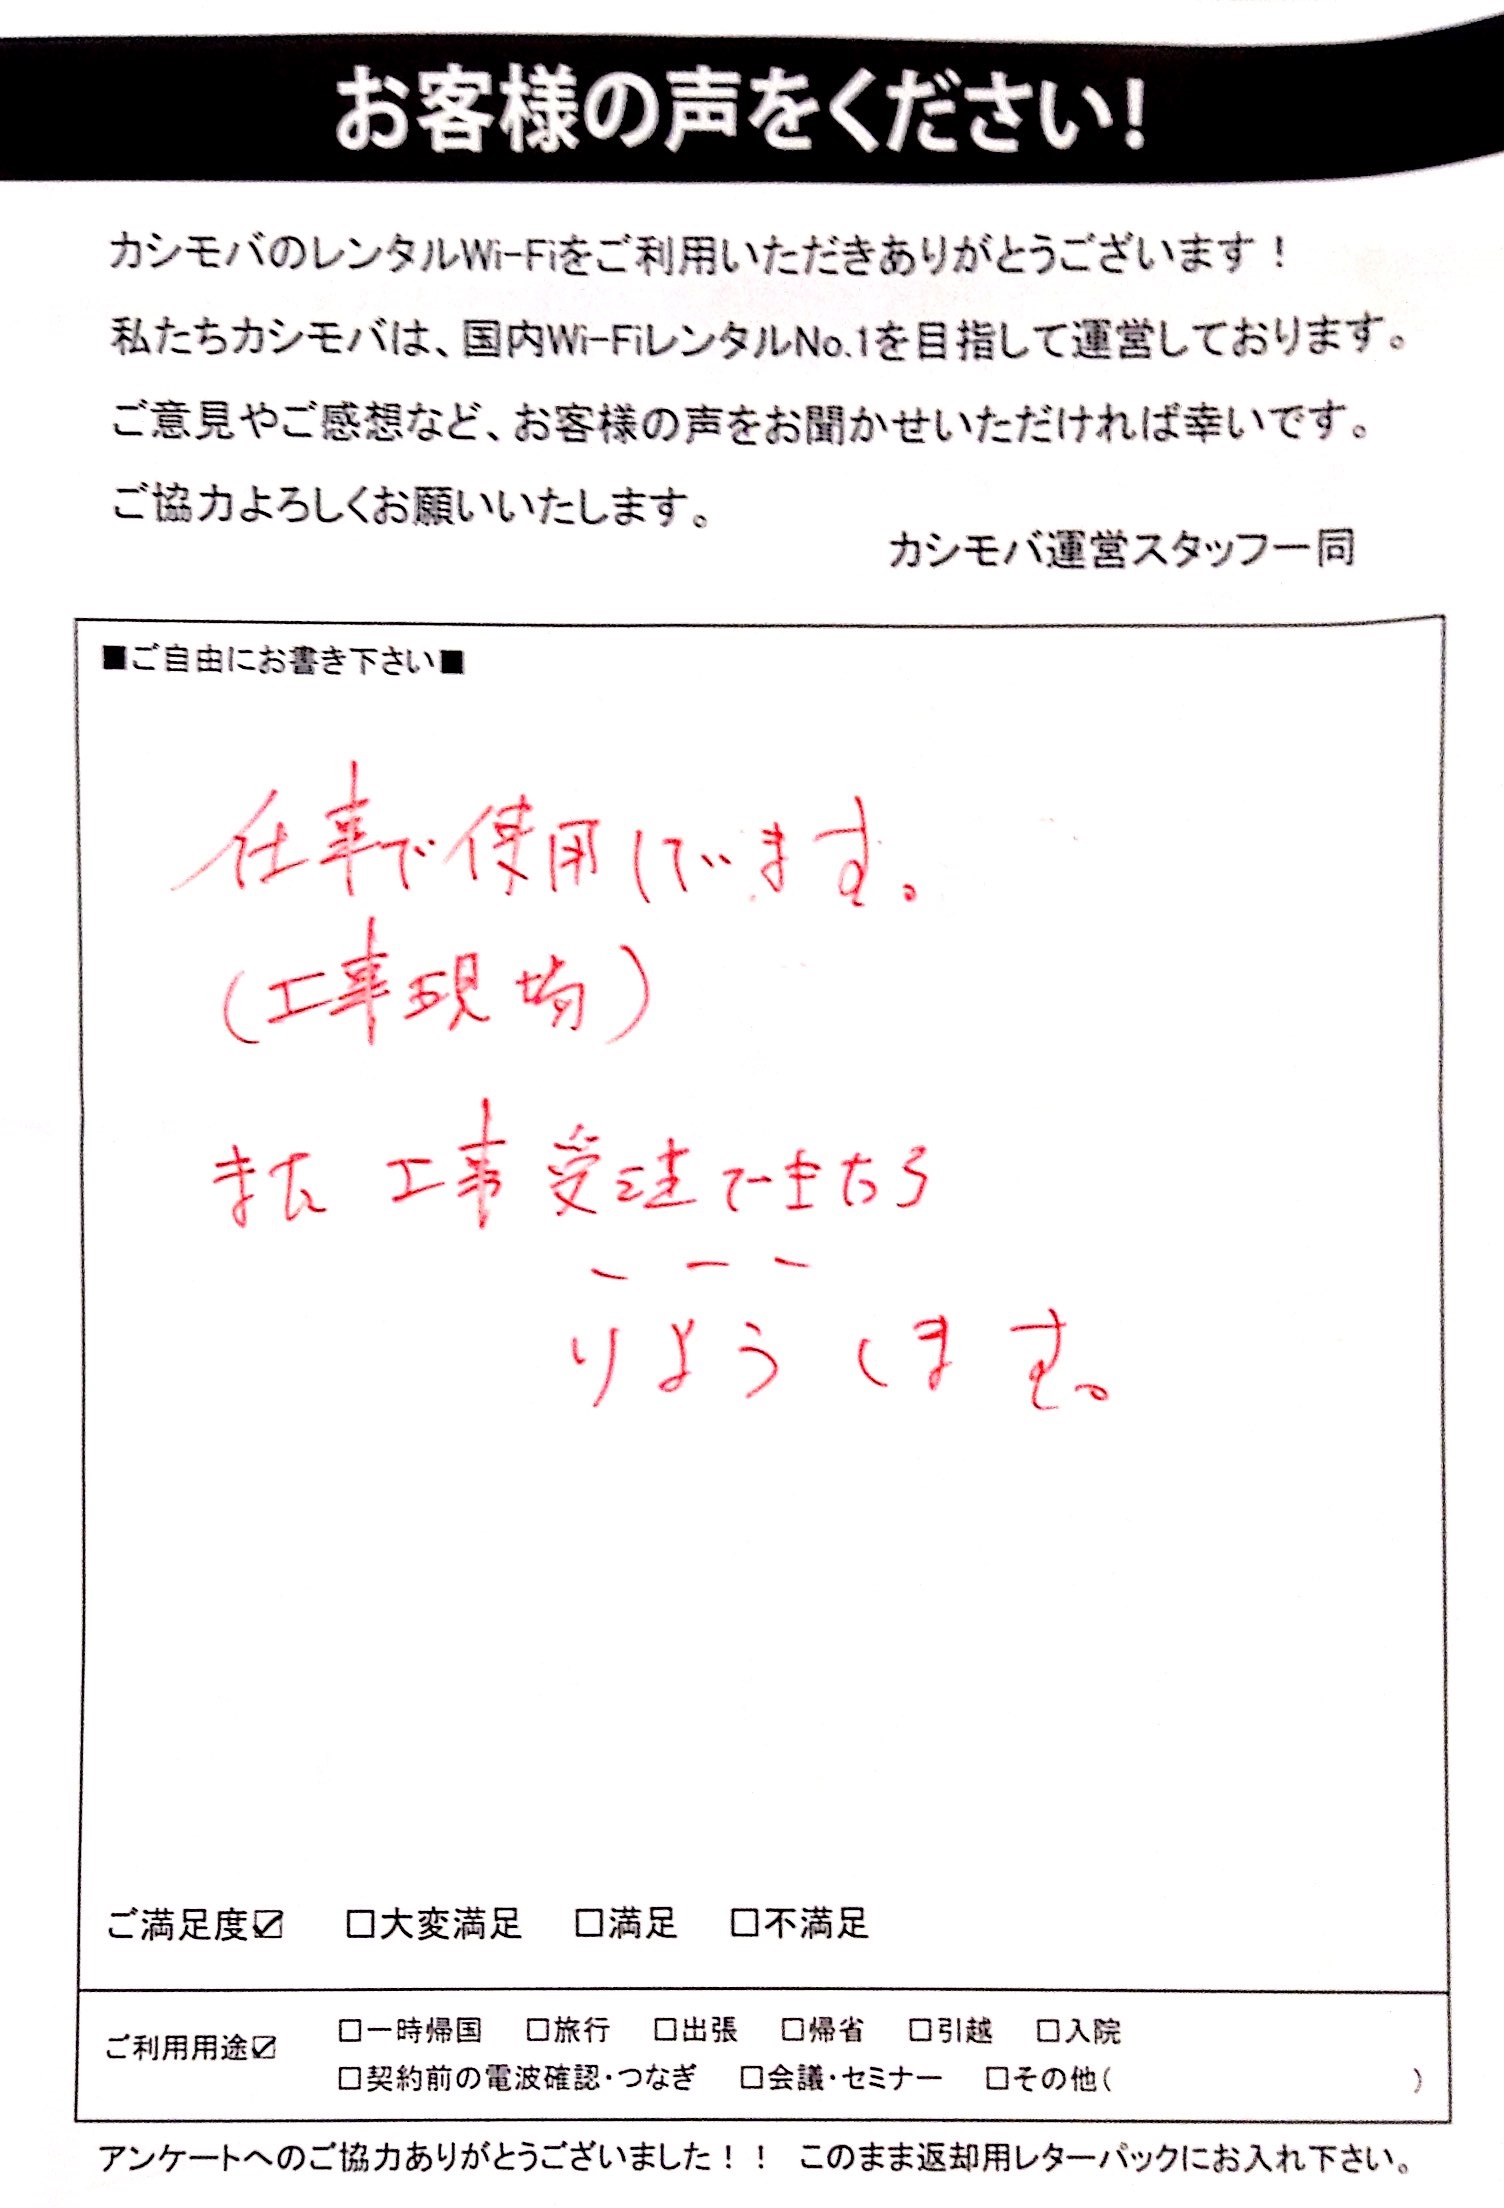 お客様の声をください!
カシモバのレンタルWi-Fiをご利用いただきありがとうございます！
私たちカシモバは、国内Wi-FiレンタルNo.1を目指して運営しております。
ご意見やご感想など、お客様の声をお聞かせいただければ幸いです。
ご協力よろしくお願いいたします。
カシモバ運営スタッフ一同
■ご自由にお書き下さい■
仕事で使用しています。
(工事現場)
また 工事受注できたら
りようします。
ご満足度☑ □大変満足 □満足 □不満足
ご利用用途☑ □一時帰国 □旅行 □出張 □帰省 □引越 □入院
□契約前の電波確認・つなぎ □会議・セミナー □その他( )
アンケートへのご協力ありがとうございました！！ このまま返却用レターパックにお入れ下さい。